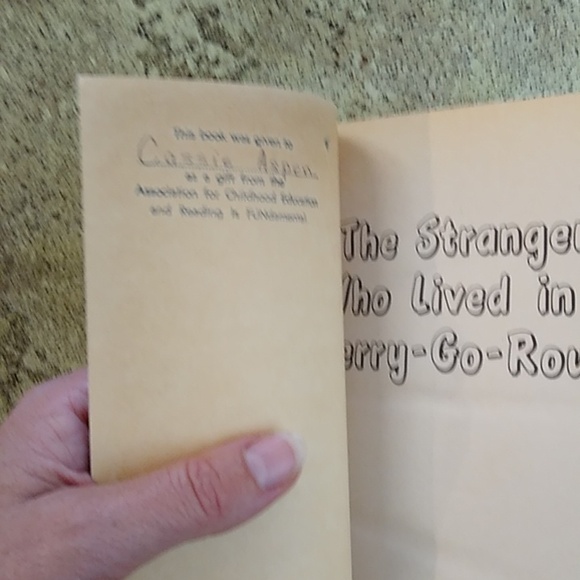 This book was given to
Cassie Aspen
as a gift from the
Association for Childhood Education
and Reading is FUNdamental
The Stranger
Who Lived in
erry-Go-Rou